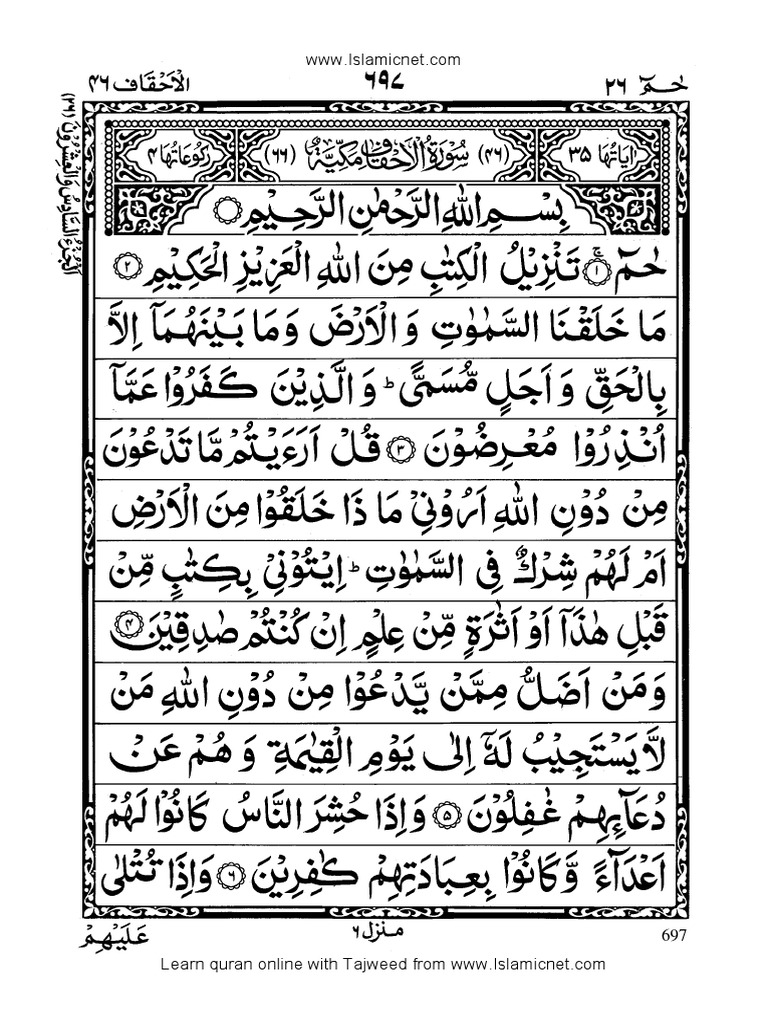 www.Islamicnet.com
حٰمٓ ٢٦ ٦٩٧ الْاَحْقَاف ٤٦
اَلْجُزْءُ السَّادِسُ وَالْعِشْرُوْنَ (٢٦)
اٰيَاتُهَا ٣٥ (٤٦) سُوْرَةُ الْاَحْقَافِ مَكِّيَّةٌ (٦٦) رُكُوْعَاتُهَا ٤
بِسْمِ اللّٰهِ الرَّحْمٰنِ الرَّحِيْمِ
حٰمٓ ۚ ١ تَنْزِيْلُ الْكِتٰبِ مِنَ اللّٰهِ الْعَزِيْزِ الْحَكِيْمِ ٢
مَا خَلَقْنَا السَّمٰوٰتِ وَ الْاَرْضَ وَ مَا بَيْنَهُمَاۤ اِلَّا
بِالْحَقِّ وَ اَجَلٍ مُّسَمًّى ؕ وَ الَّذِيْنَ كَفَرُوْا عَمَّاۤ
اُنْذِرُوْا مُعْرِضُوْنَ ٣ قُلْ اَرَءَيْتُمْ مَّا تَدْعُوْنَ
مِنْ دُوْنِ اللّٰهِ اَرُوْنِيْ مَا ذَا خَلَقُوْا مِنَ الْاَرْضِ
اَمْ لَهُمْ شِرْكٌ فِي السَّمٰوٰتِ ؕ اِيْتُوْنِيْ بِكِتٰبٍ مِّنْ
قَبْلِ هٰذَاۤ اَوْ اَثٰرَةٍ مِّنْ عِلْمٍ اِنْ كُنْتُمْ صٰدِقِيْنَ ٤
وَ مَنْ اَضَلُّ مِمَّنْ يَّدْعُوْا مِنْ دُوْنِ اللّٰهِ مَنْ
لَّا يَسْتَجِيْبُ لَهٗۤ اِلٰى يَوْمِ الْقِيٰمَةِ وَ هُمْ عَنْ
دُعَآئِهِمْ غٰفِلُوْنَ ٥ وَ اِذَا حُشِرَ النَّاسُ كَانُوْا لَهُمْ
اَعْدَآءً وَّ كَانُوْا بِعِبَادَتِهِمْ كٰفِرِيْنَ ٦ وَ اِذَا تُتْلٰى
عَلَيْهِمْ منزل ٦ 697
Learn quran online with Tajweed from www.Islamicnet.com